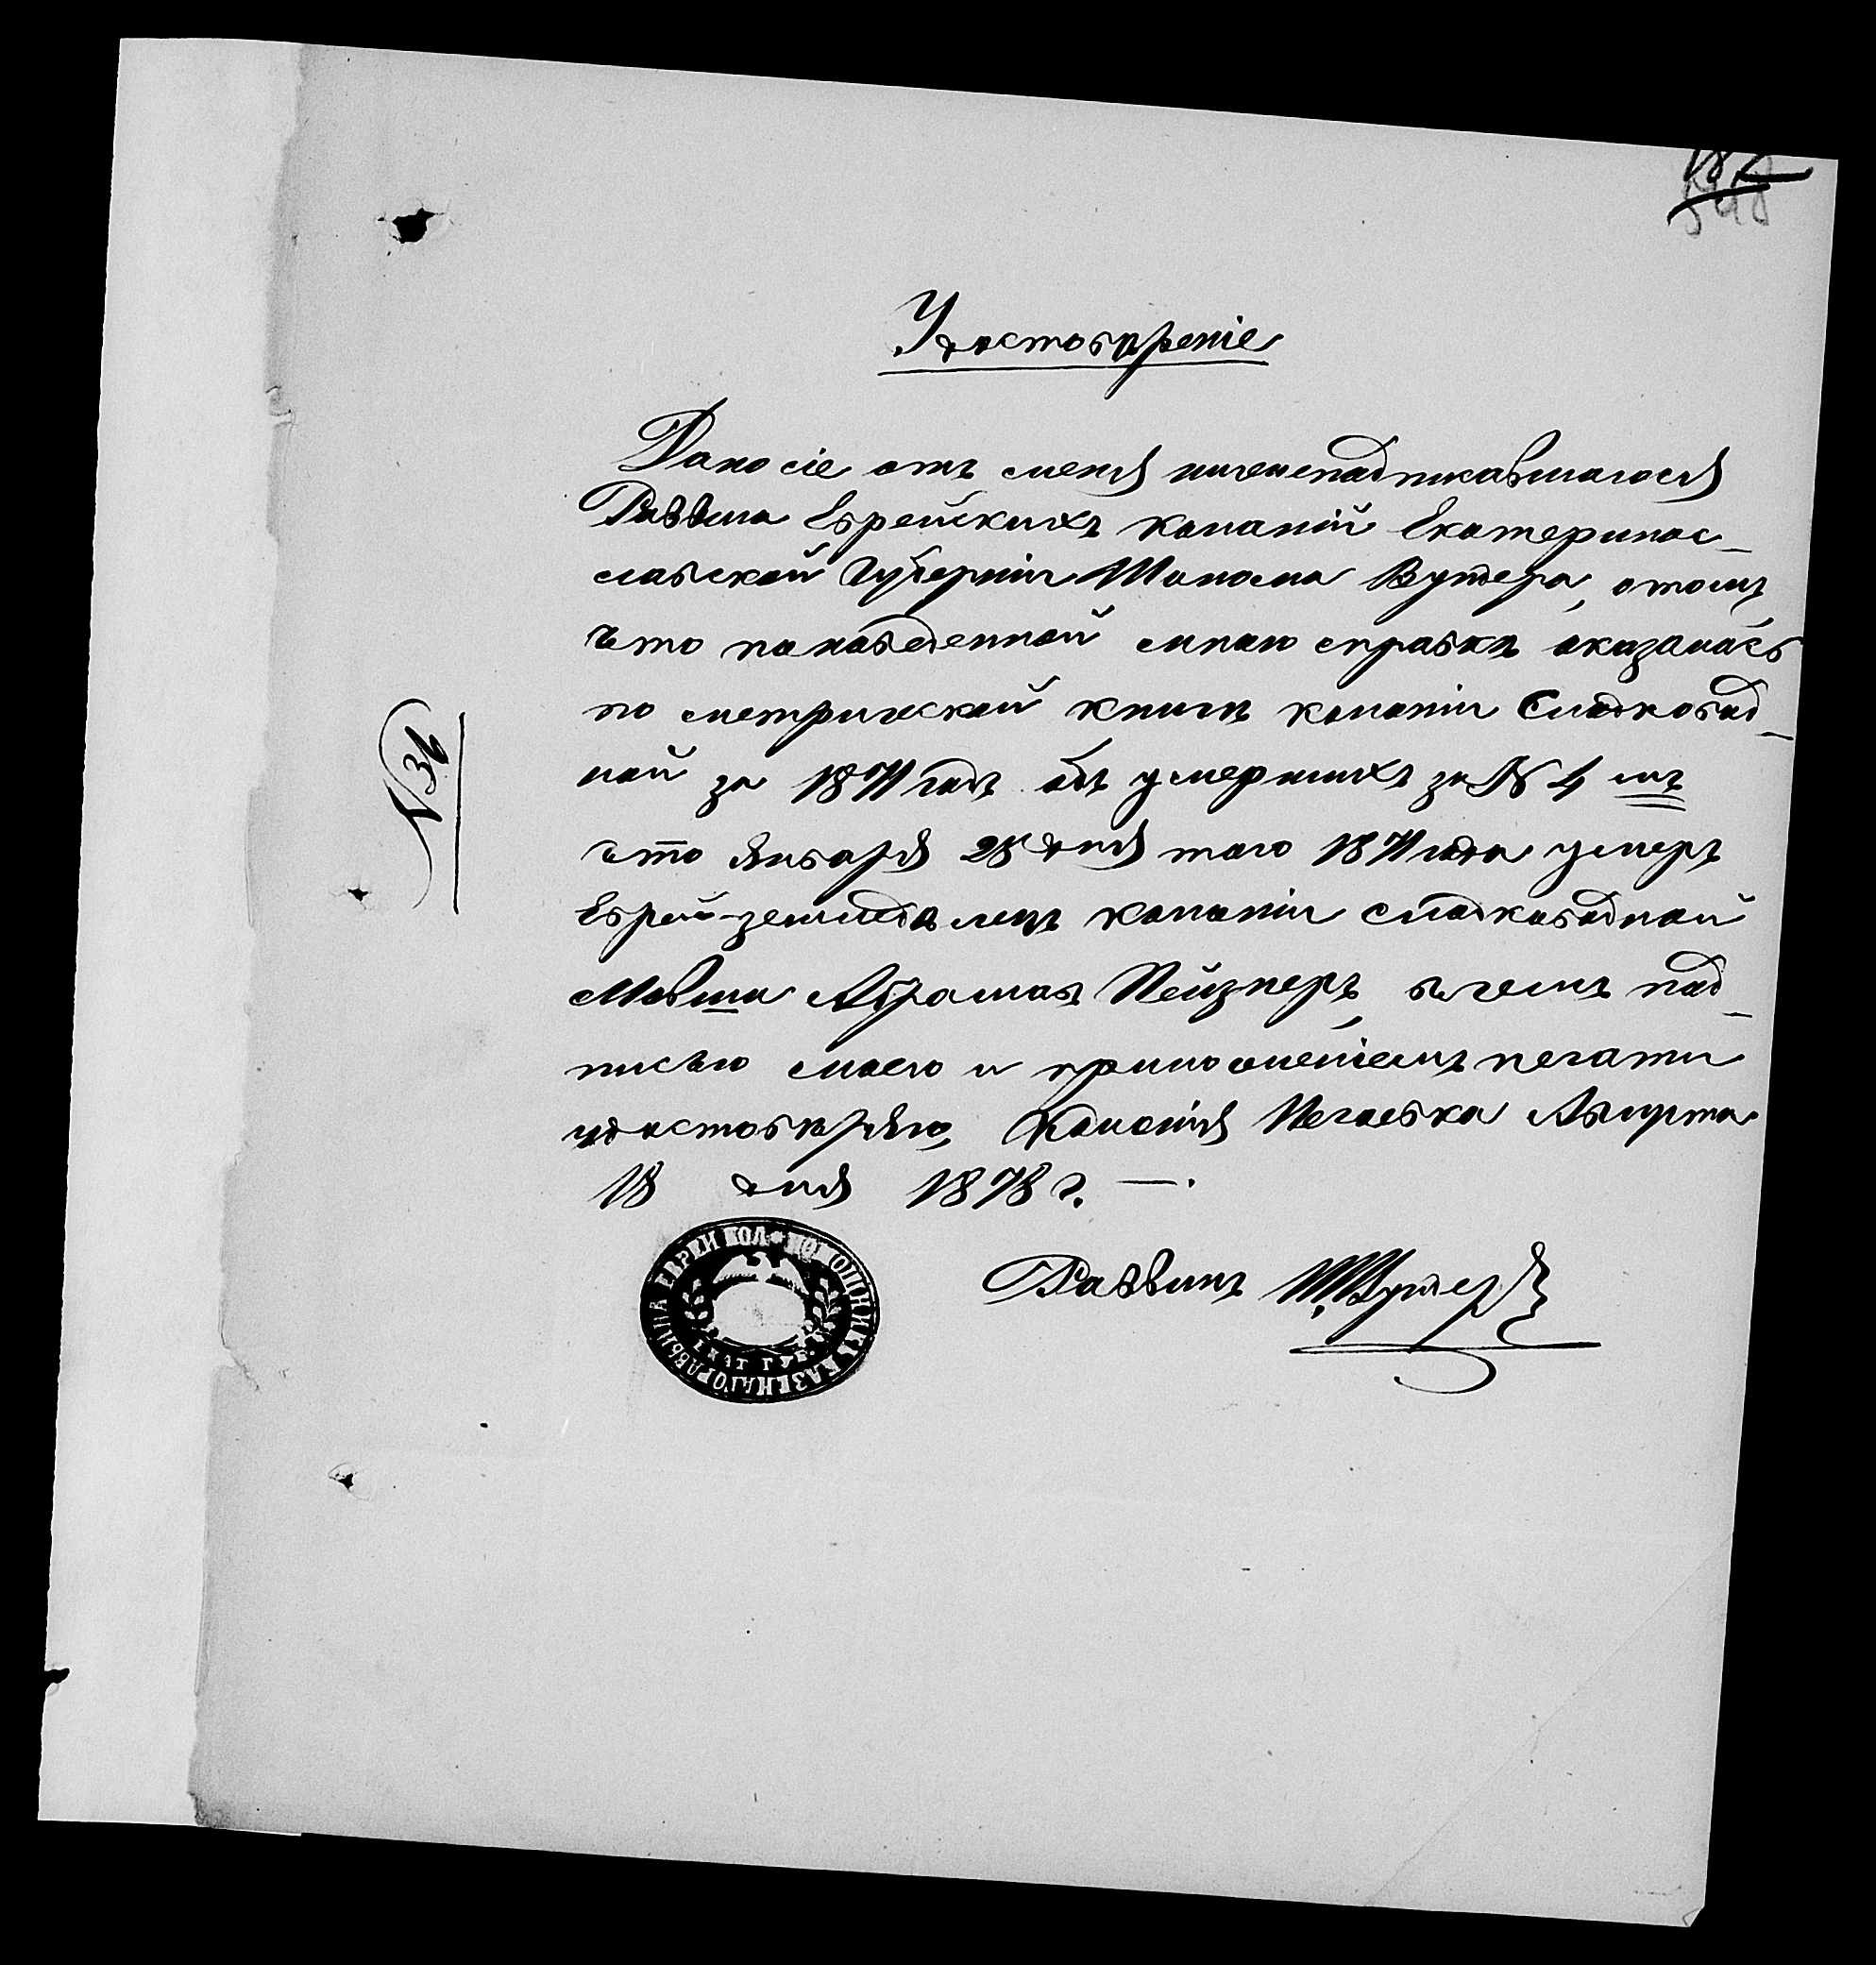 348
Удостоверѣніе
Дано сіе отъ меня нижеподписавшагося
Раввина Еврейскихъ колоній Екатеринос-
лавской Губерніи Шолома Вундера, отомъ
что понаведенной мною справкѣ оказалось
по метрической книгѣ колоніи Сладковод-
ной за 1871 годъ объ умершихъ за № 4 мъ
что Января 28 дня того 1871 года умеръ
Еврей-земледѣлецъ колоніи Сладководной
Мовша Абрамовъ Пейзнеръ, въ чемъ под-
писью моею и приложеніемъ печати
удостовѣряю, Колонія Нечаевка Августа
18 дня 1878 г. —.
N 36
Раввинъ Ш.Вундеръ
ПОМОЩНИКЪ КАЗЕННАГО РАВВИНА ЕВРЕЙ КОЛ
ЕКАТ ГУБ.